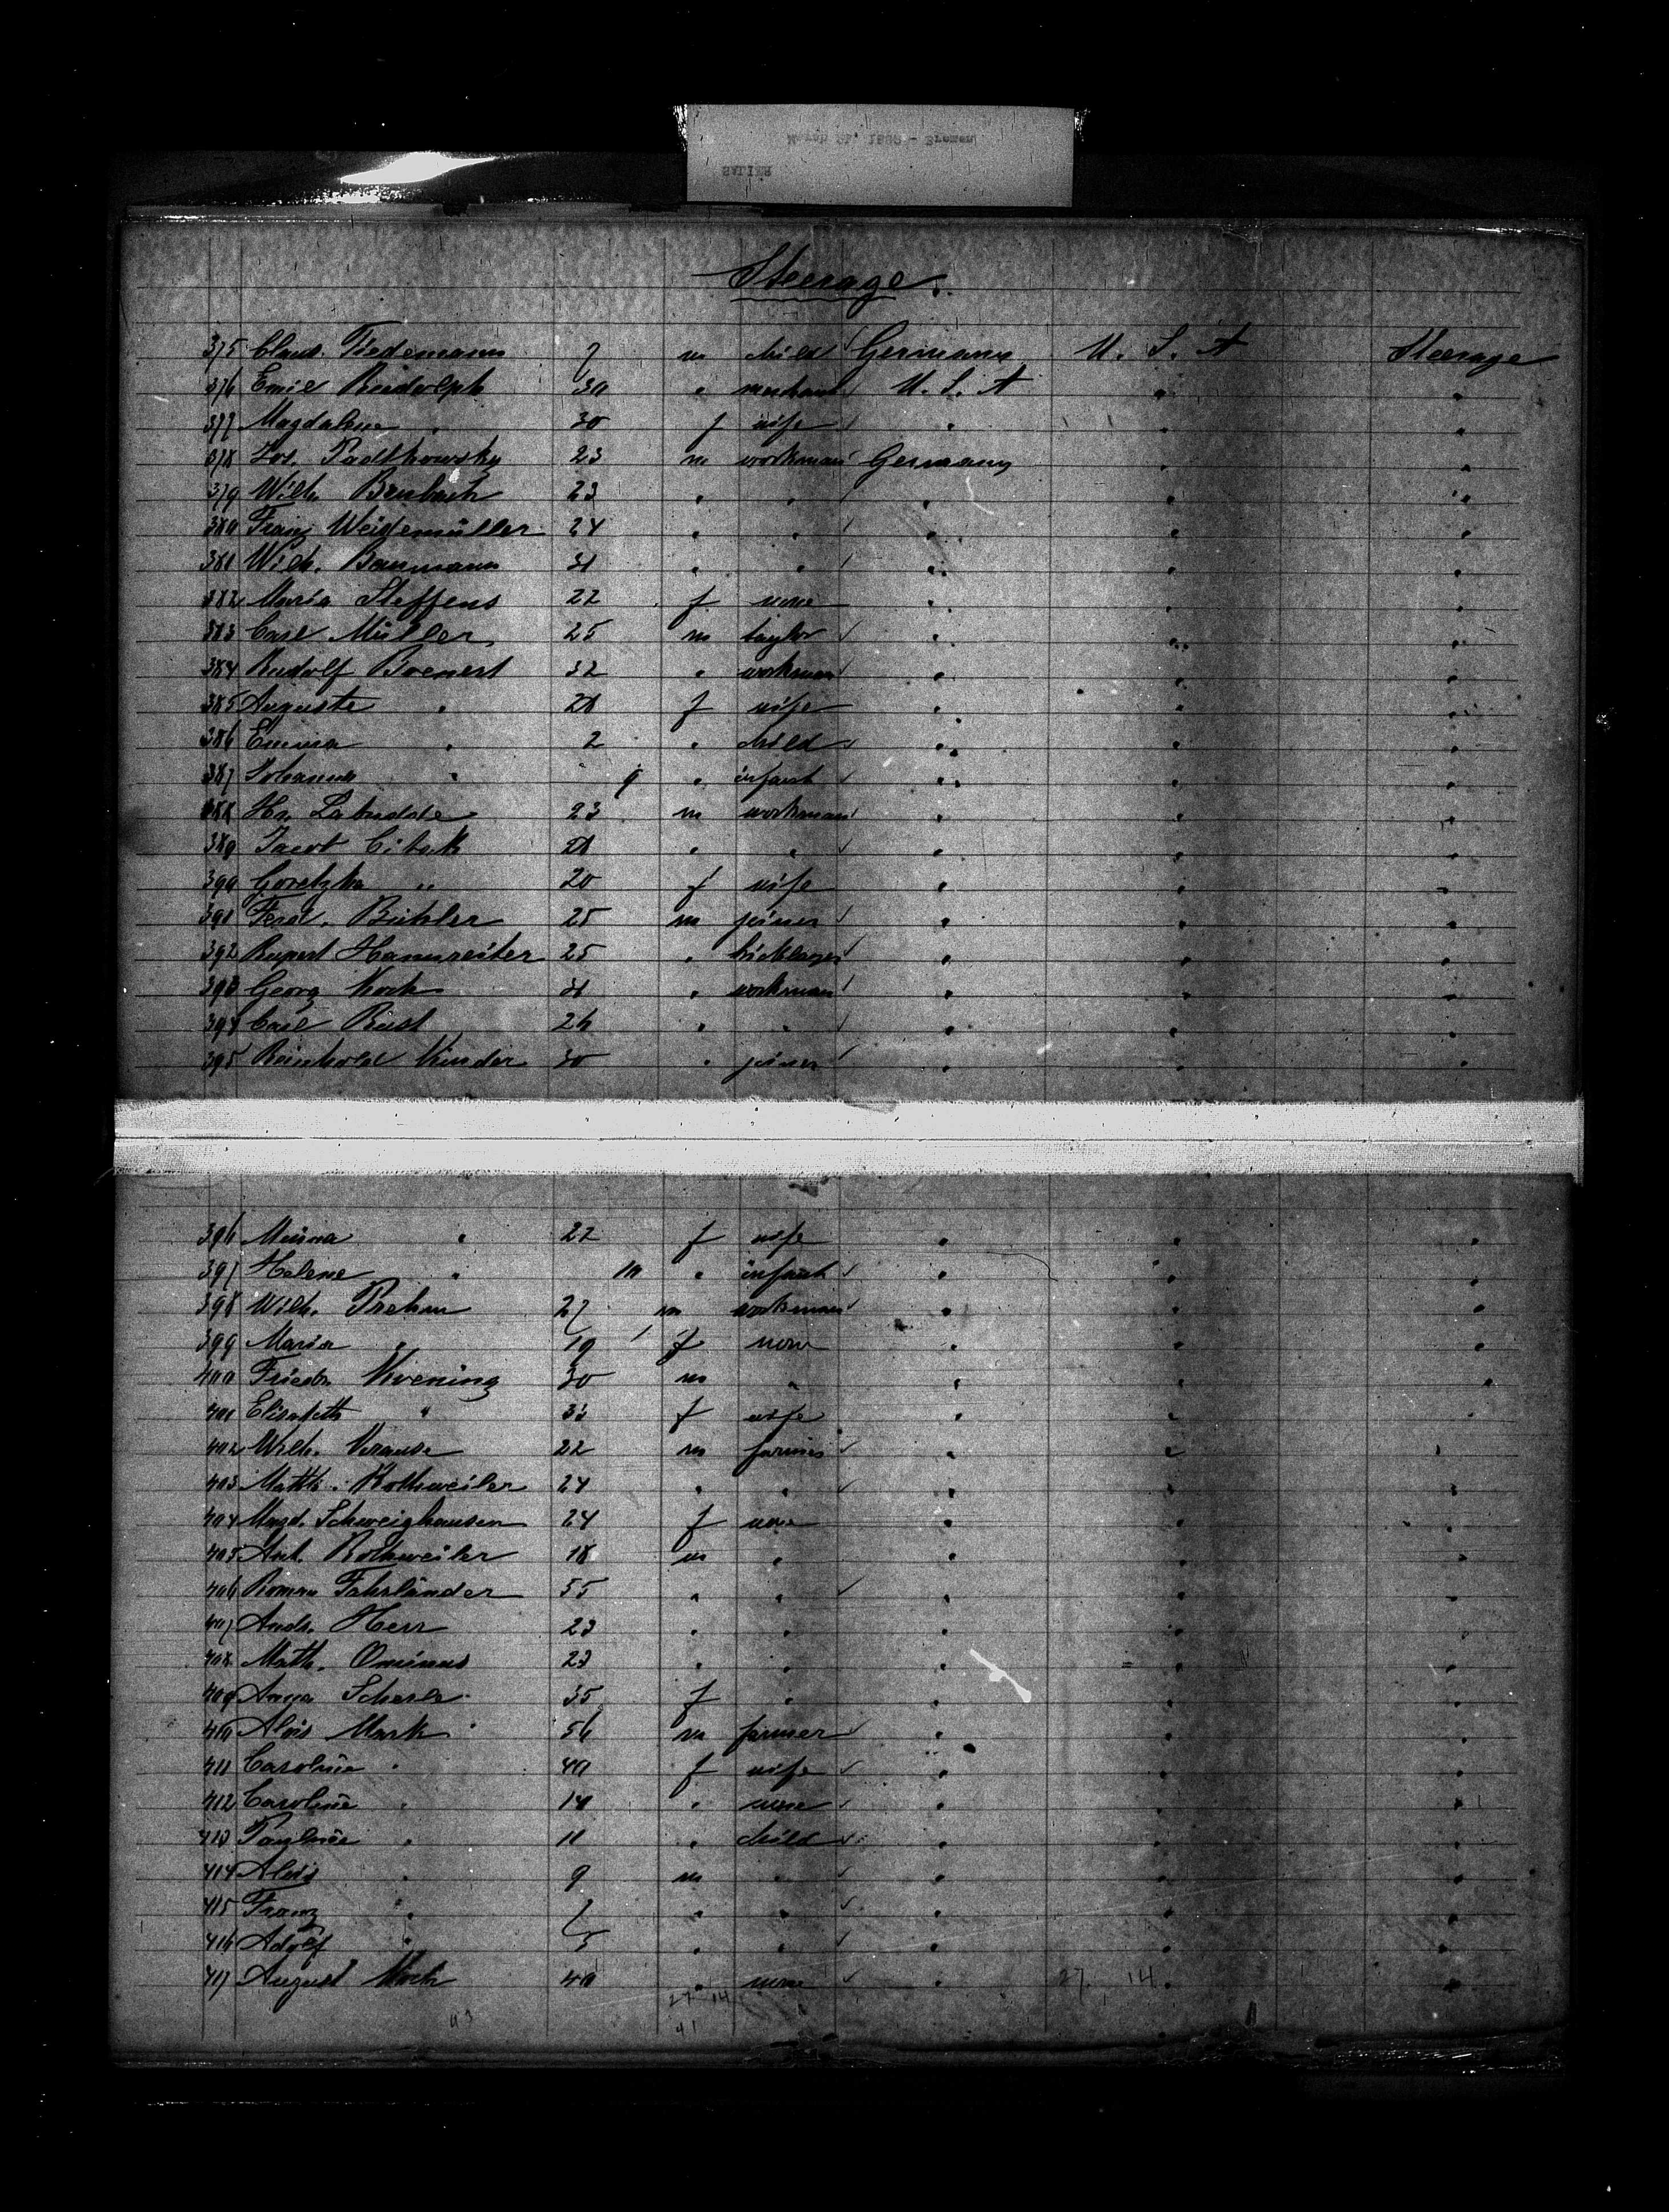 SALIER
Steerage.
375 Claus. Tiedemann 7 m child Germany U. S. A Steerage
376 Emil Rudolph 30 " merchant U. S. A " "
377 Magdalene " 30 f wife " " "
378 Jos. 23 m workman Germany " "
379 Wilh. 23 " " " " "
380 Franz Weidemüller 24 " " " " "
381 Wilh. Baumann 31 " " " " "
382 Maria Steffens 22 f none " " "
383 Carl Müller 25 m taylor " " "
384 Rudolf Boenert 32 " workman " " "
385 Auguste " 28 f wife " " "
386 Emma " 2 " child " " "
387 Johanna " 9 " infant " " "
388 Hr. Labudde 23 m workman " " "
389 Jacob 28 " " " " "
390 " 20 f wife " " "
391 Ferd. Bühler 25 m joiner " " "
392 Rupert Hannreiter 25 " " " "
393 Georg Koch 31 " workman " " "
394 Carl Rust 26 " " " " "
395 Reinhold Kinder 30 " joiner " " "
396 Minna " 22 f wife " " "
397 Helene " 10 " infant " " "
398 Wilh. Prehm 27 m workman " " "
399 Maria " 19 f none " " "
400 Friedr. Koening 30 m " " " "
401 Elisabeth " 33 f wife " " "
402 Wilh. Krause 22 m farmer " " "
403 Matth. Rothweiler 24 " " " " "
404 Magd. Schweighausen 24 f none " " "
405 Ant. Rothweiler 18 m " " " "
406 Roman Fahrländer 55 " " " " "
407 Andr. Herr 23 " " " " "
408 Math. Ominus 23 " " " " "
409 Anna Scherle 35 f " " " "
410 Alois Mark 56 m farmer " " "
411 Caroline " 40 f wife " " "
412 Caroline " 14 " none " " "
413 Pauline " 11 " child " " "
414 Alois " 9 m " " " "
415 Franz " 7 " " " " "
416 Adolf " 5 " " " " "
417 August Koch 40 " none " 27. 14. "
27 14
43 41